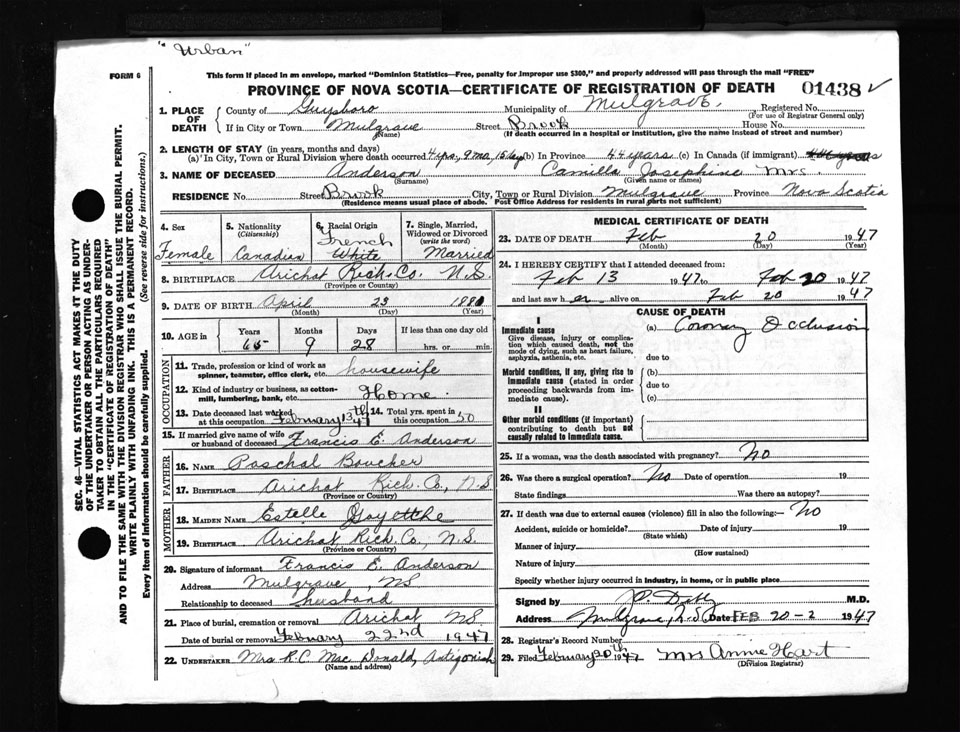 "Urban"
FORM 6
This form if placed in an envelope, marked "Dominion Statistics—Free, penalty for improper use $300," and properly addressed will pass through the mail "FREE"
PROVINCE OF NOVA SCOTIA—CERTIFICATE OF REGISTRATION OF DEATH 01438
SEC. 46—VITAL STATISTICS ACT MAKES IT THE DUTY
OF THE UNDERTAKER OR PERSON ACTING AS UNDER-
TAKER TO OBTAIN ALL THE PARTICULARS REQUIRED
IN THE "CERTIFICATE OF REGISTRATION OF DEATH"
AND TO FILE THE SAME WITH THE DIVISION REGISTRAR WHO SHALL ISSUE THE BURIAL PERMIT.
WRITE PLAINLY WITH UNFADING INK. THIS IS A PERMANENT RECORD.
Every item of Information should be carefully supplied. (See reverse side for instructions.)
1. PLACE OF DEATH
County of Guysboro Municipality of Mulgrave Registered No.
(For use of Registrar General only)
If in City or Town Mulgrave Street Brook House No.
(Name) (If death occurred in a hospital or institution, give the name instead of street and number)
2. LENGTH OF STAY (in years, months and days)
(a) In City, Town or Rural Division where death occurred 4 yrs, 9 mo, 15 day (b) In Province 44 years (c) In Canada (if immigrant)
3. NAME OF DECEASED Anderson Camilla Josephine Mrs.
(Surname) (Given name or names)
RESIDENCE No. Street Brook City, Town or Rural Division Mulgrave Province Nova Scotia
(Residence means usual place of abode. Post Office Address for residents in rural parts not sufficient)
4. Sex
Female
5. Nationality
(Citizenship)
Canadian
6. Racial Origin
French
White
7. Single, Married,
Widowed or Divorced
(write the word)
Married
8. BIRTHPLACE Arichat Rich. Co. N.S
(Province or Country)
9. DATE OF BIRTH April 23 1881
(Month) (Day) (Year)
10. AGE in Years Months Days If less than one day old
65 9 28 hrs. or min.
OCCUPATION
11. Trade, profession or kind of work as
spinner, teamster, office clerk, etc. housewife
12. Kind of industry or business, as cotton-
mill, lumbering, bank, etc. Home
13. Date deceased last worked
at this occupation February 13th 47
14. Total yrs. spent in
this occupation 50
15. If married give name of wife
or husband of deceased Francis E. Anderson
FATHER
16. NAME Paschal Boucher
17. BIRTHPLACE Arichat Rich. Co., N.S
(Province or Country)
MOTHER
18. MAIDEN NAME Estelle Goyetthe
19. BIRTHPLACE Arichat Rich. Co., N.S.
(Province or Country)
20. Signature of informant Francis E. Anderson
Address Mulgrave, NS
Relationship to deceased husband
21. Place of burial, cremation or removal Arichat NS
Date of burial or removal February 22nd 1947
22. UNDERTAKER Mrs R.C. Mac Donald, Antigonish
(Name and address)
MEDICAL CERTIFICATE OF DEATH
23. DATE OF DEATH Feb 20 1947
(Month) (Day) (Year)
24. I HEREBY CERTIFY that I attended deceased from:
Feb 13 1947 to Feb 20 1947
and last saw her alive on Feb 20 1947
CAUSE OF DEATH
I
Immediate cause
Give disease, injury or complica-
tion which caused death, not the
mode of dying, such as heart failure,
asphyxia, asthenia, etc.
(a) Coronary Occlusion
due to
Morbid conditions, if any, giving rise to
immediate cause (stated in order
proceeding backwards from im-
mediate cause).
(b)
due to
(c)
II
Other morbid conditions (if important)
contributing to death but not
causally related to immediate cause.
25. If a woman, was the death associated with pregnancy? No
26. Was there a surgical operation? No Date of operation 19
State findings Was there an autopsy?
27. If death was due to external causes (violence) fill in also the following:— No
Accident, suicide or homicide? Date of injury 19
(State which)
Manner of injury
(How sustained)
Nature of injury
Specify whether injury occurred in industry, in home, or in public place
Signed by M.D.
Address Mulgrave, N.S. Date: FEB 20-2 1947
28. Registrar's Record Number
29. Filed February 20th 1947 Mrs Annie Hart
(Division Registrar)